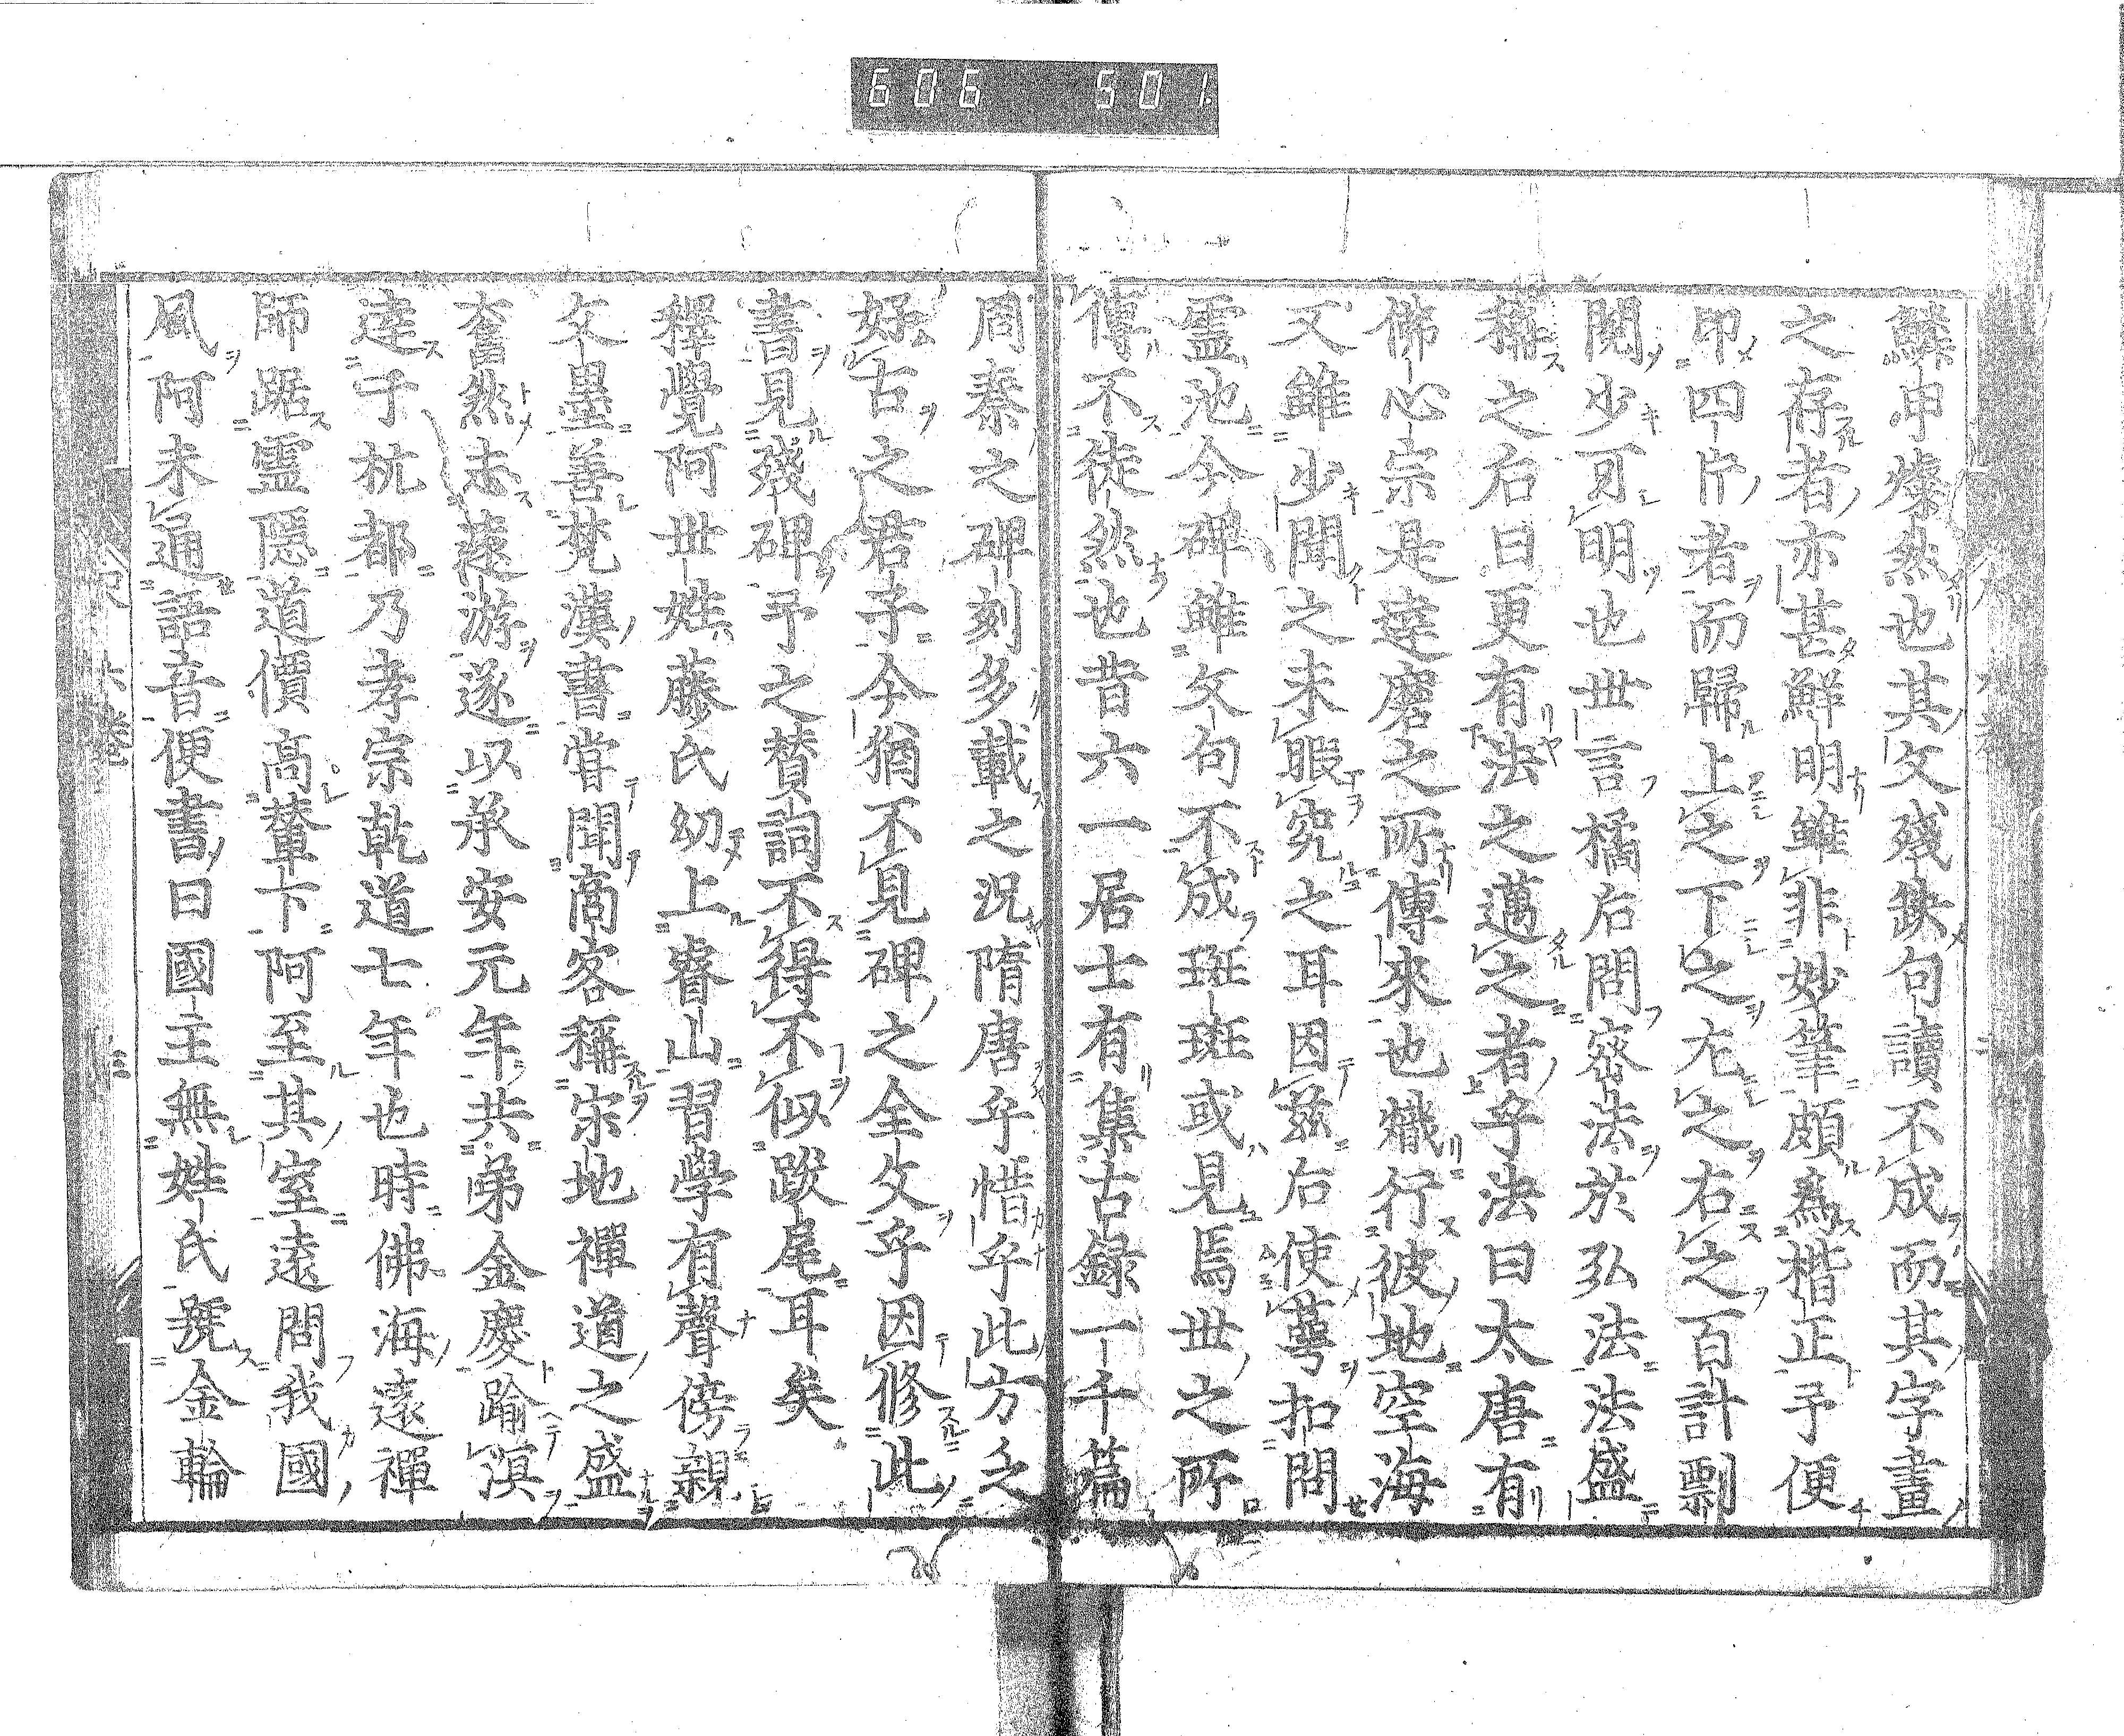 606 501
鱗甲燦然也其文殘缺句讀不成而其字畫
之存者亦甚鮮明雖非妙筆頗爲楷正予便
印四片者而歸上之下之左之右之百計剽
閱少可明也世言橘后問密法於弘法法盛
稱之后曰更有法之邁之者乎法曰太唐有
佛心宗是達磨之所傳來也熾行彼地空海
又雖少聞之未暇究之耳因茲后使萼扣問
靈池今碑雖文句不成斑斑或見焉世之所
傳不徒然也昔六一居士有集古録一千篇
周秦之碑刻多載之況隋唐乎惜乎此方乏
好古之君子今猶不見碑之全文乎因修此
書見殘碑予之賛詞不得不似跋尾耳矣
釋覺阿世姓藤氏幼上睿山習學有聲傍親
文墨善梵漢書甞聞商客稱宋地禪道之盛
奮然志遠游遂以承安元年共弟金慶踰溟
達于杭都乃孝宗乾道七年也時佛海遠禪
師踞靈隱道價高輦下阿至其室遠問我國
風阿未通語音便書曰國主無姓氏號金輪